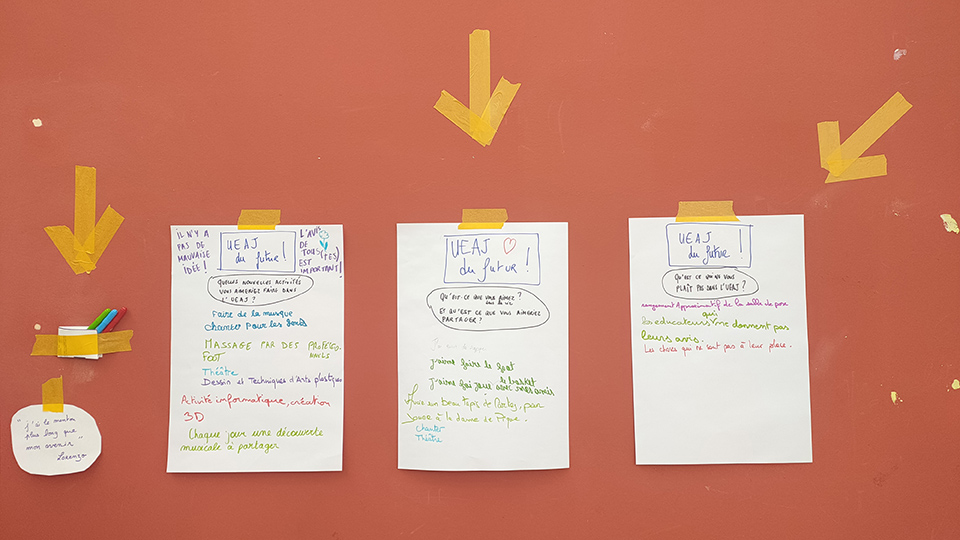 IL N'Y A
PAS DE
MAUVAISE
IDÉE !
UEAJ
du futur !
L'AVIS
DE
TOUS(TES)
EST
IMPORTANT !
QUELLES NOUVELLES ACTIVITÉS
VOUS AIMERIEZ FAIRE DANS
L'UEAJ ?
Faire de la musique
Chanter Pour les
MASSAGE PAR DES
FOOT
Théâtre
Dessin et Techniques d'Arts plastiques
Activité informatique, création
3D
Chaque jour une découverte
musicale à partager
UEAJ
du futur !
QU'EST-CE QUE VOUS AIMEZ ?
DANS LA VIE
ET QU'EST CE QUE VOUS AIMERIEZ
PARTAGER ?
j'aime faire le foot
le basket
j'aime avec mes amis
un beau tapis de
à la dame de Pique.
Chanter
Théâtre
UEAJ
du futur !
QU'EST CE QUI NE VOUS
PLAÎT PAS DANS L'UEAJ ?
Approximatif de la salle de pose
qui
les educateurs me donnent pas
leurs avis.
Les choses qui ne sont pas à leur place.
"j'ai le menton
plus long que
mon avenir"
Lorenzo